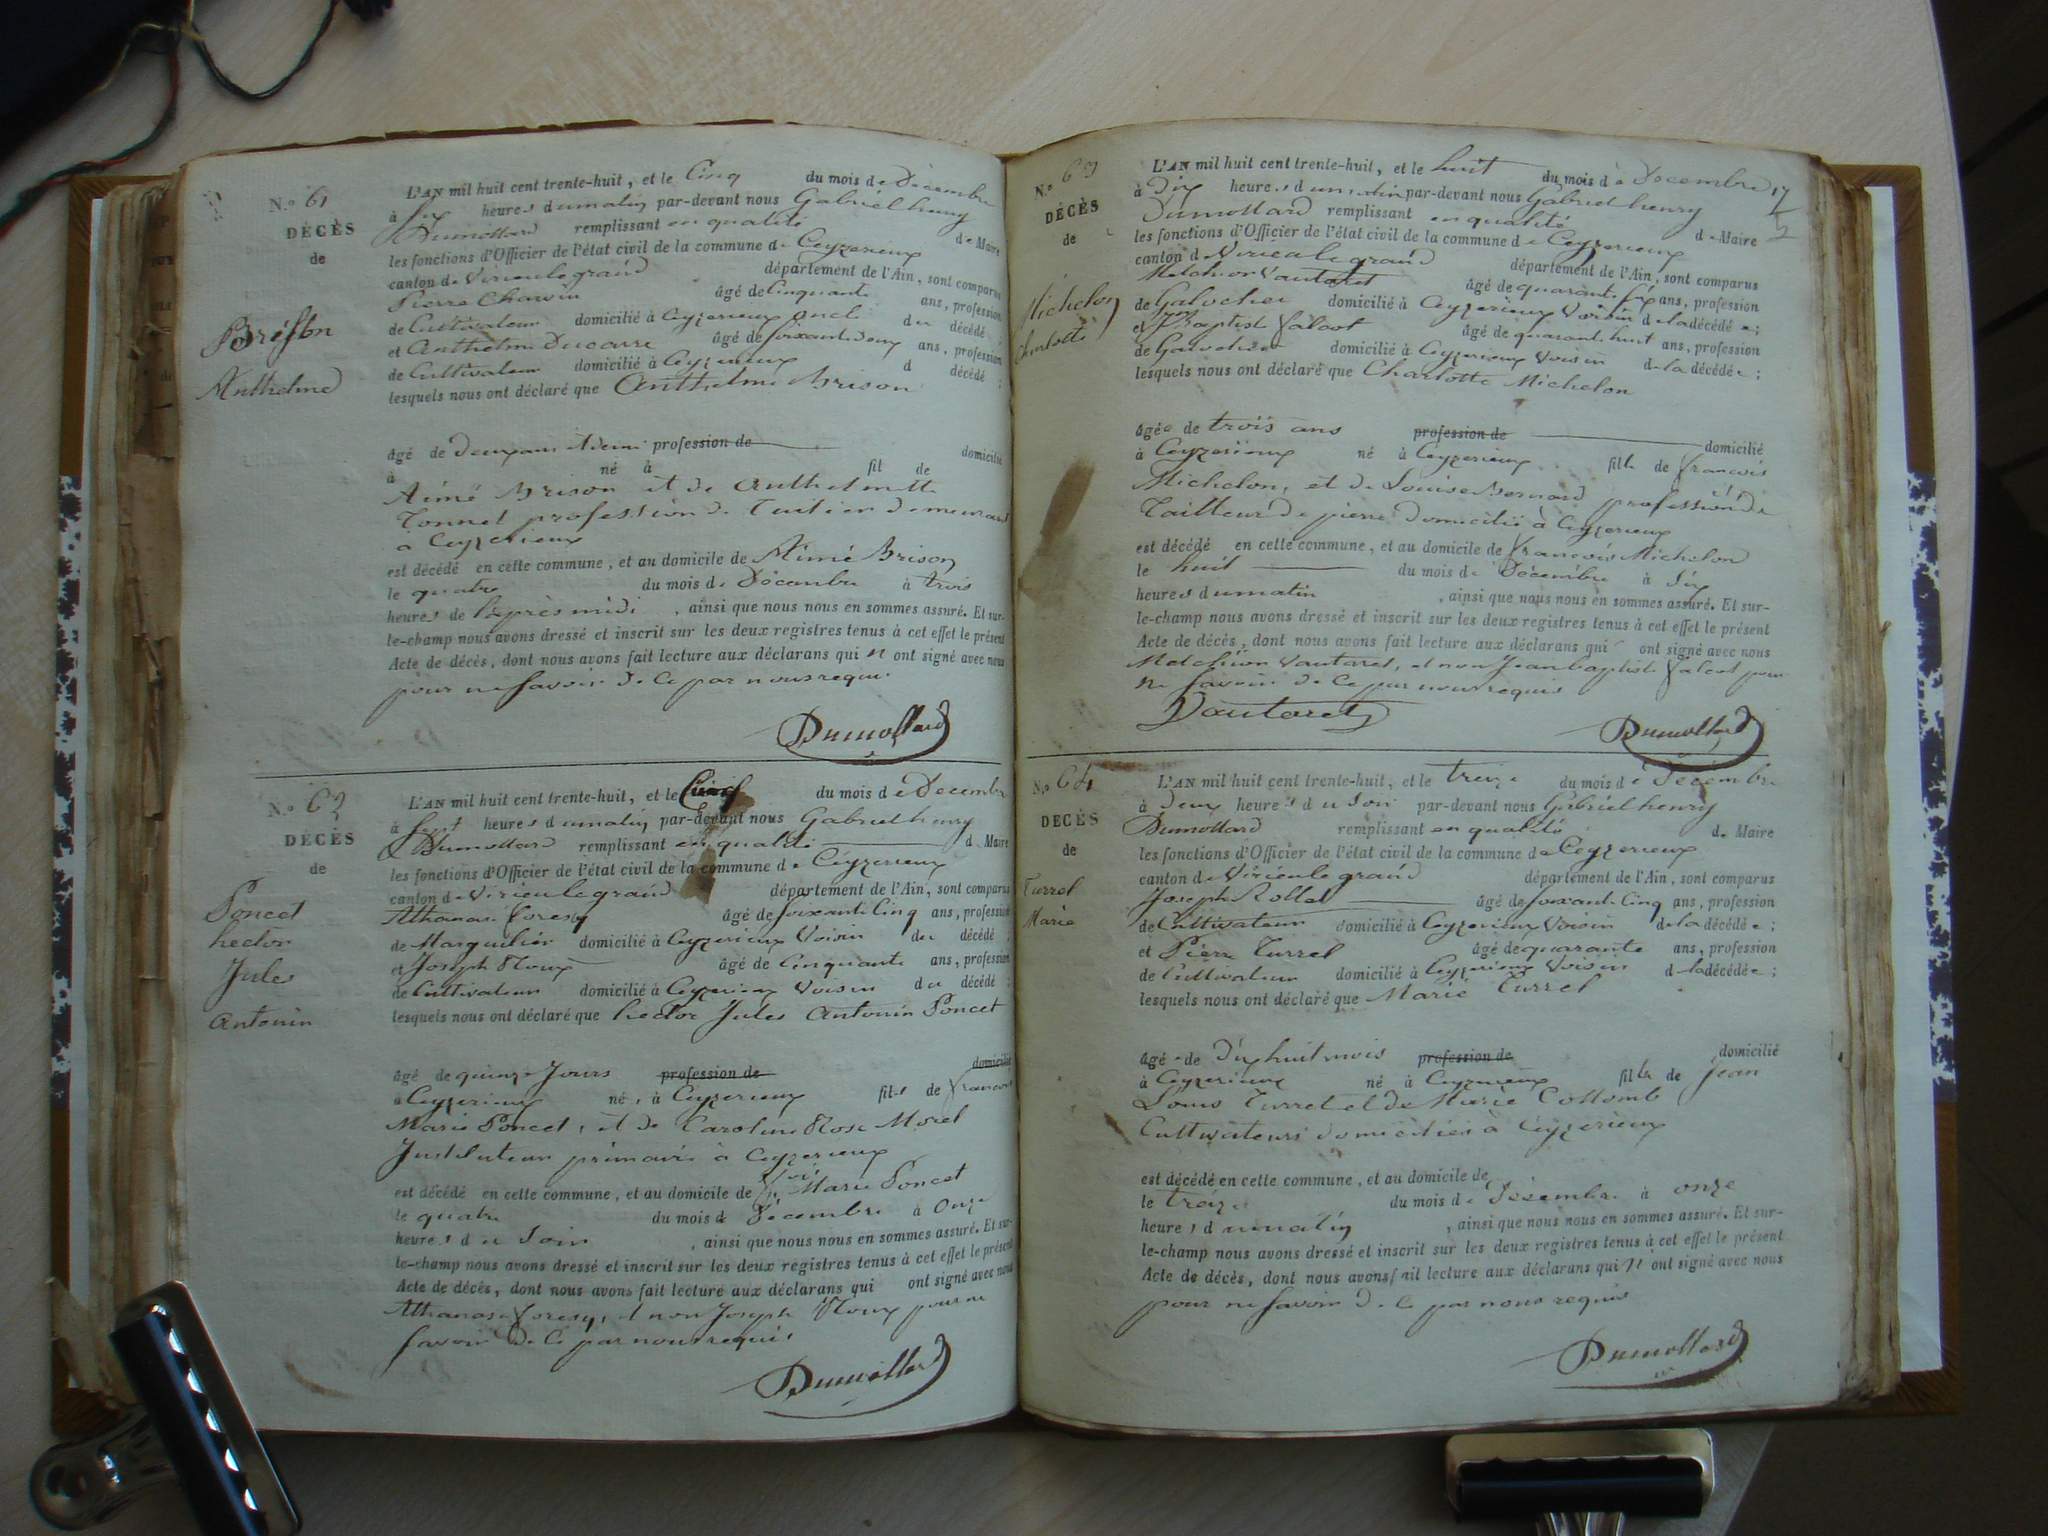 N.o 61
DÉCÈS
de
Brisson
Anthelme
L'AN mil huit cent trente-huit, et le Cinq du mois de Décembre
à six heures du matin par-devant nous Gabriel henry
Dumollard remplissant en qualité de Maire
les fonctions d'Officier de l'état civil de la commune de Ceyzerieux
canton de Virieulegrand département de l'Ain, sont comparus
Pierre Charvin âgé de Cinquante ans, profession
de Cultivateur domicilié à Ceyzerieux oncle du décédé ;
et Anthelme Ducarre âgé de soixantedeux ans, profession
de Cultivateur domicilié à Ceyzerieux d décédé ;
lesquels nous ont déclaré que Anthelme Brison
âgé de deux ans et demi profession de domicilié
à né à fil de
Aimé Brison et de Anthelmette
Tonnet profession de Tuilier demeurant
à Ceyzerieux
est décédé en cette commune, et au domicile de Aimé Brison
le quatre du mois de Décembre à trois
heures de l'après midi, ainsi que nous nous en sommes assuré. Et sur-
le-champ nous avons dressé et inscrit sur les deux registres tenus à cet effet le présent
Acte de décès, dont nous avons fait lecture aux déclarans qui n'ont signé avec nous
pour ne savoir de Ce par nous requi
Dumollard
N.o 62
DÉCÈS
de
Poncet
hector
Jules
Antonin
L'AN mil huit cent trente-huit, et le Cinq du mois de Décembre
à sept heures du matin par-devant nous Gabriel henry
Dumollard remplissant en qualité d Maire
les fonctions d'Officier de l'état civil de la commune de Ceyzerieux
canton de Virieulegrand département de l'Ain, sont comparus
Athanase foresy âgé de soixantecinq ans, profession
de Marguilier domicilié à Ceyzerieux Voisin du décédé ;
et Joseph Roux âgé de Cinquante ans, profession
de Cultivateur domicilié à Ceyzerieux Voisin du décédé ;
lesquels nous ont déclaré que hector Jules Antonin Poncet
âgé de quinze Jours profession de domicilié
à Ceyzerieux né à Ceyzerieux fils de francois
Marie Poncet, et de Caroline Rose Morel
Instituteur primaire à Ceyzerieux
est décédé en cette commune, et au domicile de Marie Poncet
le quatre du mois de Décembre à Onze
heures du Soir, ainsi que nous nous en sommes assuré. Et sur-
le-champ nous avons dressé et inscrit sur les deux registres tenus à cet effet le présent
Acte de décès, dont nous avons fait lecture aux déclarans qui ont signé avec nous
Athanase foresy, et non Joseph Roux pour ne
savoir de Ce par nous requis
Dumollard
N.o 63
DÉCÈS
de
Michelon
Charlotte
L'AN mil huit cent trente-huit, et le huit du mois de Décembre
à Dix heures du matin par-devant nous Gabriel henry
Dumollard remplissant en qualité de Maire
les fonctions d'Officier de l'état civil de la commune de Ceyzerieux
canton de Virieulegrand département de l'Ain, sont comparus
Melchior Vautaret âgé de quarante six ans, profession
de Galochier domicilié à Ceyzerieux Voisin de la décédée ;
et Jean Baptiste falcot âgé de quarante huit ans, profession
de Galochier domicilié à Ceyzerieux Voisin de la décédée ;
lesquels nous ont déclaré que Charlotte Michelon
âgée de trois ans profession de domicilié
à Ceyzerieux né à Ceyzerieux fille de francois
Michelon, et de Louise Bernard profession de
Tailleur de pierre domicilié à Ceyzerieux
est décédé en cette commune, et au domicile de francois Michelon
le huit du mois de Décembre à Six
heures du matin, ainsi que nous nous en sommes assuré. Et sur-
le-champ nous avons dressé et inscrit sur les deux registres tenus à cet effet le présent
Acte de décès, dont nous avons fait lecture aux déclarans qui ont signé avec nous
Melchior Vautaret, et non Jean baptiste falcot pour
ne savoir de Ce par nous requis
Vautaret
Dumollard
N.o 64
DÉCÈS
de
Turrel
Marie
L'AN mil huit cent trente-huit, et le treize du mois de Décembre
à Deux heures du Soir par-devant nous Gabriel henry
Dumollard remplissant en qualité de Maire
les fonctions d'Officier de l'état civil de la commune de Ceyzerieux
canton de Virieulegrand département de l'Ain, sont comparus
Joseph Rollet âgé de soixante Cinq ans, profession
de Cultivateur domicilié à Ceyzerieux Voisin de la décédée ;
et Pierre Turrel âgé de quarante ans, profession
de Cultivateur domicilié à Ceyzerieux Voisin de la décédée ;
lesquels nous ont déclaré que Marie Turrel
âgé de Dix huit mois profession de domicilié
à Ceyzerieux né à Ceyzerieux fille de Jean
Louis Turrel et de Marie Collomb
Cultivateurs domiciliés à Ceyzerieux
est décédé en cette commune, et au domicile de
le treize du mois de Décembre à onze
heures du matin, ainsi que nous nous en sommes assuré. Et sur-
le-champ nous avons dressé et inscrit sur les deux registres tenus à cet effet le présent
Acte de décès, dont nous avons fait lecture aux déclarans qui n'ont signé avec nous
pour ne savoir de Ce par nous requis
Dumollard